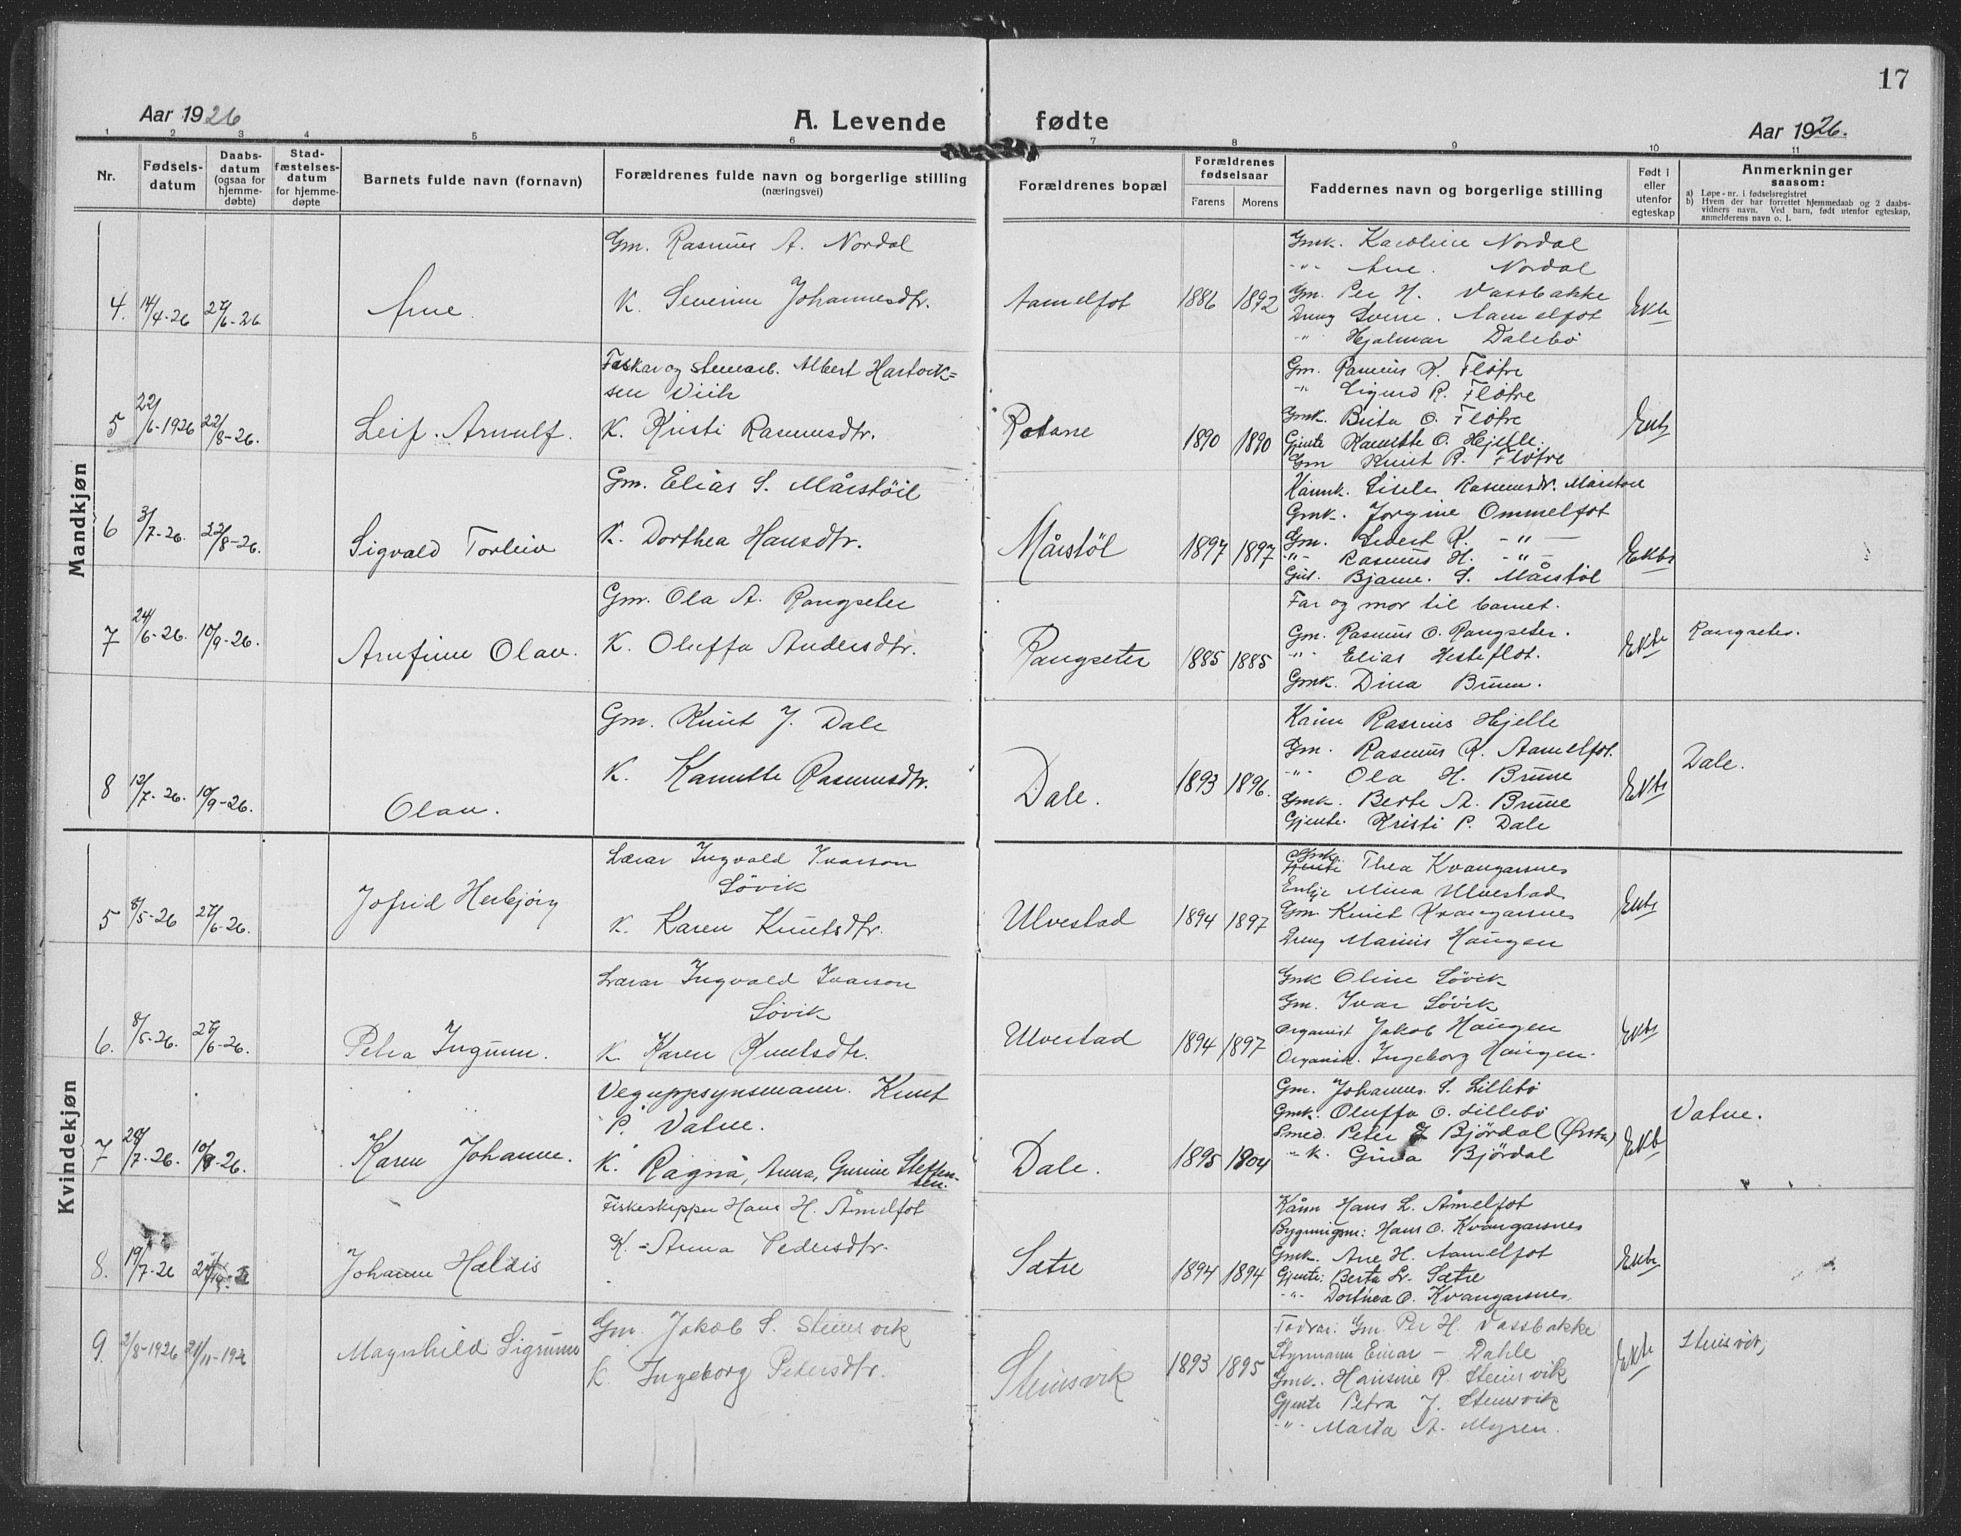 17
Aar 1926
A. Levende fødte
Aar 1926.
1 2 3 4 5 6 7 8 9 10 11
Nr.
Fødsels-
datum
Daabs-
datum
(ogsaa for
hjemme-
døbte)
Stad-
fæstelses-
datum
for hjemme-
døpte
Barnets fulde navn (fornavn)
Forældrenes fulde navn og borgerlige stilling
(næringsvei)
Forældrenes bopæl
Forældrenes
fødselsaar
Farens Morens
Faddernes navn og borgerlige stilling
Født i
eller
utenfor
egteskap
Anmerkninger
saasom:
a) Løpe-nr. i fødselsregistret
b) Hvem der har forrettet hjemmedaab og 2 daabs-
vidners navn. Ved barn, født utenfor egteskap,
anmelderens navn o. l.
Mandkjøn
4. 14/4-26 27/6-26
Arne.
Gm. Rasmus A. Nordal
K. Severine Johannesdtr.
Aamelfot
1886 1892
Gmk. Karoline Nordal
-"- Ane. Nordal
Gm. Per H. Vassbakke
Dreng Sverre. Aamelfot
" Hjalmar Dalebø
Ekte
5 22/6-1926 22/8-26.
Leif. Arnulf.
Fiskar og steinarb. Albert Hartvik=
sen Viik
K. Kristi Rasmusdtr.
Rotane
1890 1890
Gm. Rasmus K. Fløtre
-"- Sigurd R. Fløtre
Gmk. Brita O. Fløtre
Gjente Kanutte O. Hjelle.
Gm Knut R. Fløtre
6 3/7-26. 22/8-26.
Sigvald Torleiv
Gm. Elias S. Mårstøil
K. Dorthea Hansdtr.
Mårstøl
1897 1897
Gmk. Jorgine Ommelfot
Gm. Sivert K. -"-
-"- Rasmus H. -"-
Bjarne. S. Mårstøl
7 24/6-26. 10/9-26.
Arnfinn Olav.
Gm. Ola A. Rangseter
K. Oluffa Andersdtr.
Rangseter
1885 1885
Far og mor til barnet.
Gm. Rasmus O. Rangseter.
-"- Elias Hesteflot.
Gmk. Dina Brune.
Ekte
Rangseter.
8 12/7-26. 10/9-26.
Olav.
Gm. Knut J. Dale
K. Kanutte Rasmusdtr.
Dale.
1893 1896.
Kårm Rasmus Hjelle
Gm. Rasmus R. Aamelfot.
-"- Ola H. Brune
Gmk. Berte A. Brune
Gjente. Kristi P. Dale
Dale.
Kvindekjøn
5 8/5-26 27/6-26.
Jofrid Herbjörg
Lærar Ingvald Ivarson
Søvik
K. Karen Knutsdtr.
Ulvestad
1894 1897
Gmk. Thea Kvangarsnes
Enkje Mina Ulvestad
Gm. Knut Kvangarsnes
Dreng Marius Haugen
6. 8/5-26. 27/6-26.
Petra Ingunn.
Lærar Ingvald Ivarson
Søvik
K. Karen Knutsdtr.
Ulvestad
1894 1897
Gmk Oline Søvik
Gm. Ivar Søvik
Organist Jakob Haugen
Organistk. Ingeborg Haugen.
7 28/7-26. 10/9-26.
Karen Johanne.
Veguppsynsmann. Knut
P. Vatne.
K. Ragna, Anna, Gunine Steffen-
sen.
Dale.
1895 1904
Gm. Johannes. S. Lillebø
Gmk. Oluffa O. Lillebø
Smed. Peter J Bjørdal (Ørsta)
-"- k. Gina Bjørdal
Ekte
Vatne.
8. 19/7-26
Johanne Haldis
Fiskeskipper Hans H. Åmelfot
K. - Anna Pedersdtr.
Sætre
1894 1894
Kårm Hans L. Åmelfot
Bygningsm: Hans O. Kvangarsnes
Gmk. Ane H. Aamelfot
Gjente: Berta Sætre
-"- Dorthea O. Kvangarsnes.
Ekte
9. 2/8-1926 21/11-1926
Magnhild Sigrunn
Gm. Jakob S. Steinsvik
K. Ingeborg Pedersdtr.
Steinsvik
1893 1895
Fadrar. Gm. Per H. Vassbakke
Styrmann Einar - Dahle
Gmk. Hansine R. Steinsvik
Gjente Petra J. Steinsvik
-"- Marta A. Myren.
Ekte